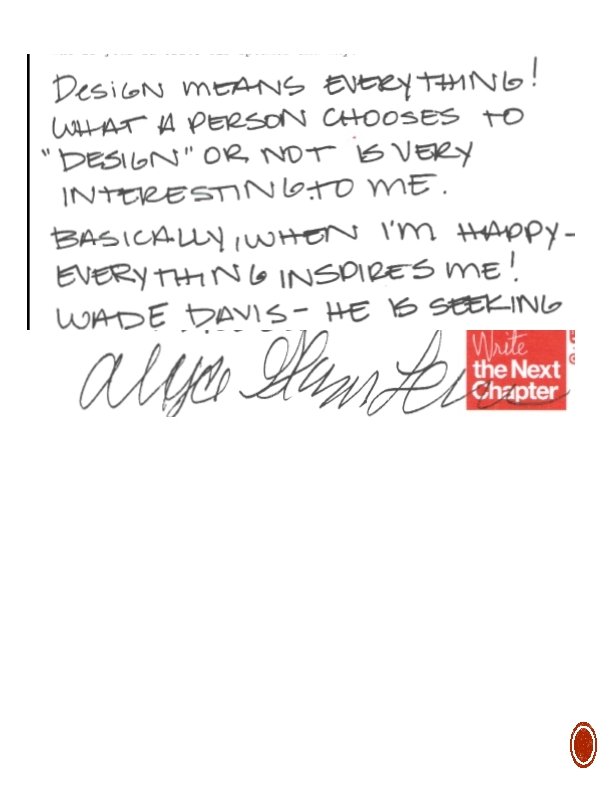 DESIGN MEANS EVERYTHING!
WHAT A PERSON CHOOSES TO
"DESIGN" OR NOT IS VERY
INTERESTING TO ME.
BASICALLY, WHEN I'M HAPPY-
EVERYTHING INSPIRES ME!
WADE DAVIS- HE IS SEEKING
Alyce
Write
the Next
Chapter